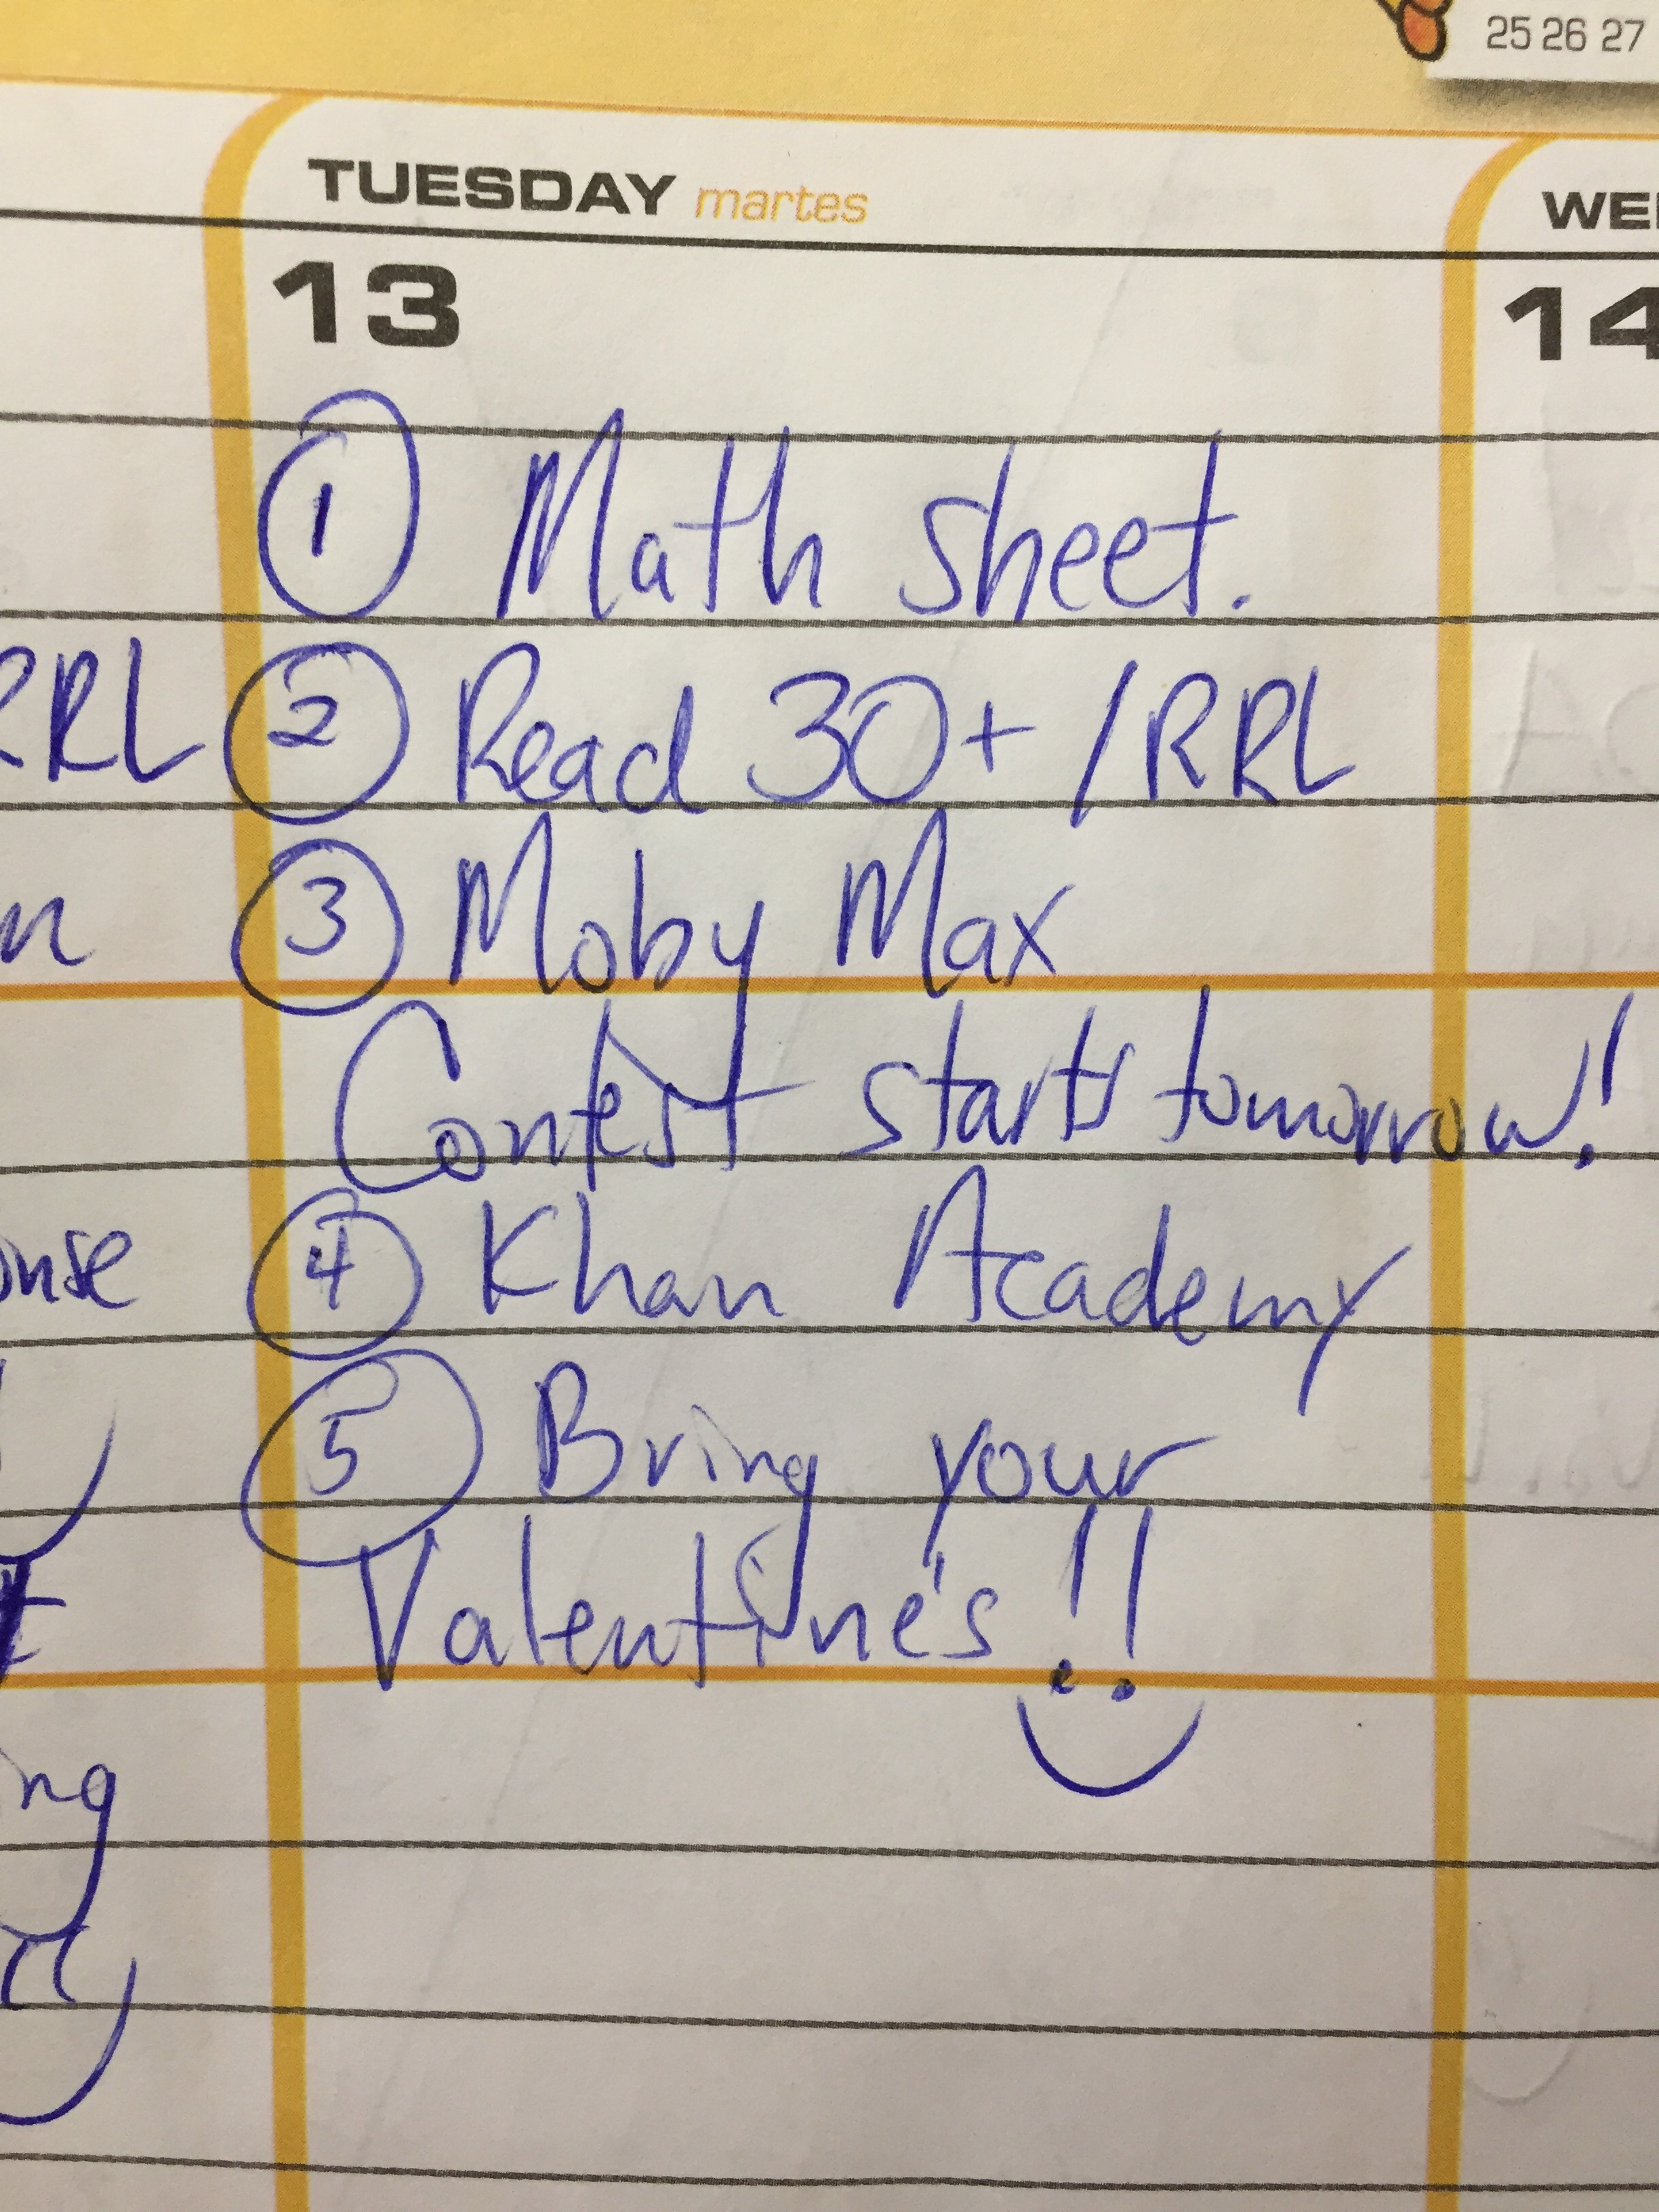 25 26 27
TUESDAY martes
WE
13
14
① Math sheet.
RRL
② Read 30+ /RRL
③ Moby Max
Contest starts tomorrow!
④ Khan Academy
⑤ Bring your
Valentine's!!